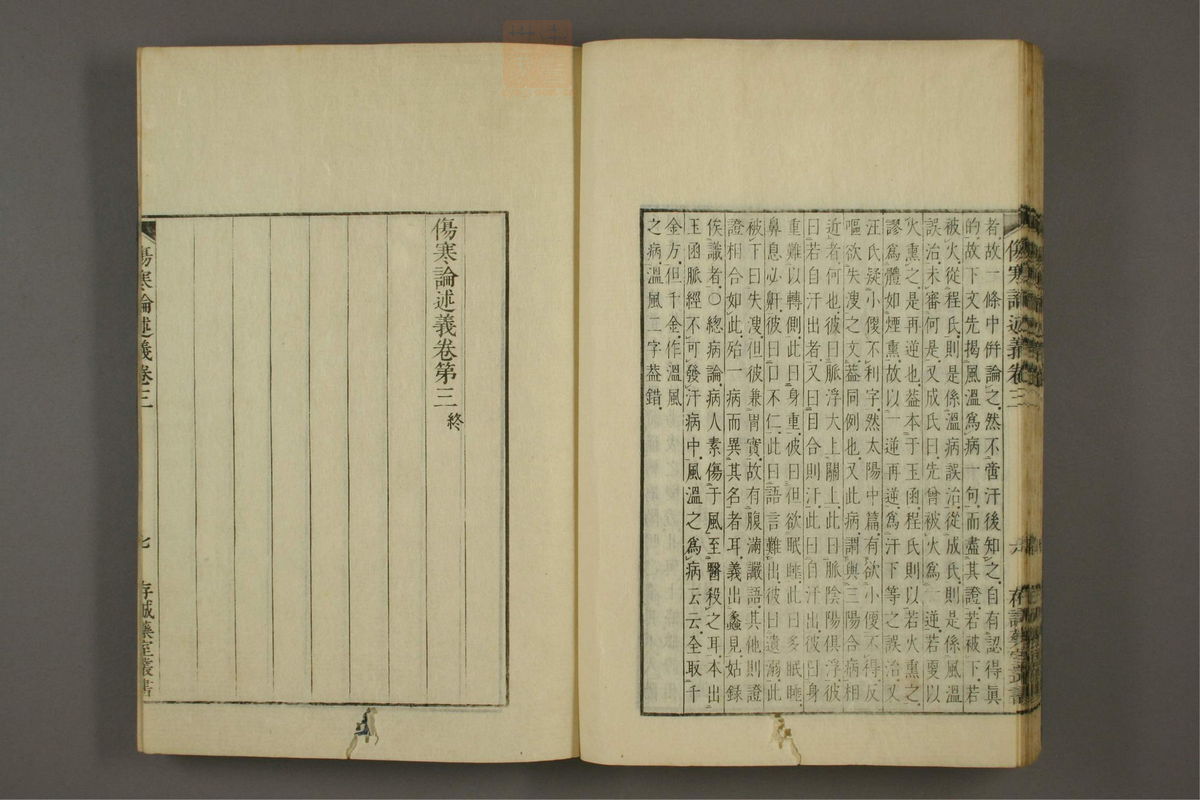 傷寒論述義卷三
六
存誠藥室叢書
者故一條中併論之然不啻汗後知之自有認得眞
的故下文先揭風溫爲病一句而盡其證若被下若
被火從程氏則是係溫病誤治從成氏則是係風溫
誤治未審何是又成氏曰先曾被火爲一逆若更以
火熏之是再逆也葢本于玉函程氏則以若火熏之
謬爲體如煙熏故以一逆再逆爲汗下等之誤治又
汪氏疑小便不利字然太陽中篇有欲小便不得反
嘔欲失溲之文葢同例也又此病謂與三陽合病相
近者何也彼曰脈浮大上關上此曰脈陰陽俱浮彼
曰若自汗出者又曰目合則汗此曰自汗出彼曰身
重難以轉側此曰身重彼曰但欲眠睡此曰多眠睡
鼻息必鼾彼曰口不仁此曰語言難出彼曰遺溺此
被下曰失溲但彼兼胃實故有腹滿讝語其他則證
證相合如此殆一病而異其名者耳義出蠡見姑錄
俟識者○總病論病人素傷于風至醫殺之耳本出
玉函脈經不可發汗病中風溫之爲病云云全取千
金方但千金作溫風
之病溫風二字葢錯
傷寒論述義卷第三終
傷寒論述義卷三
七
存誠藥室叢書